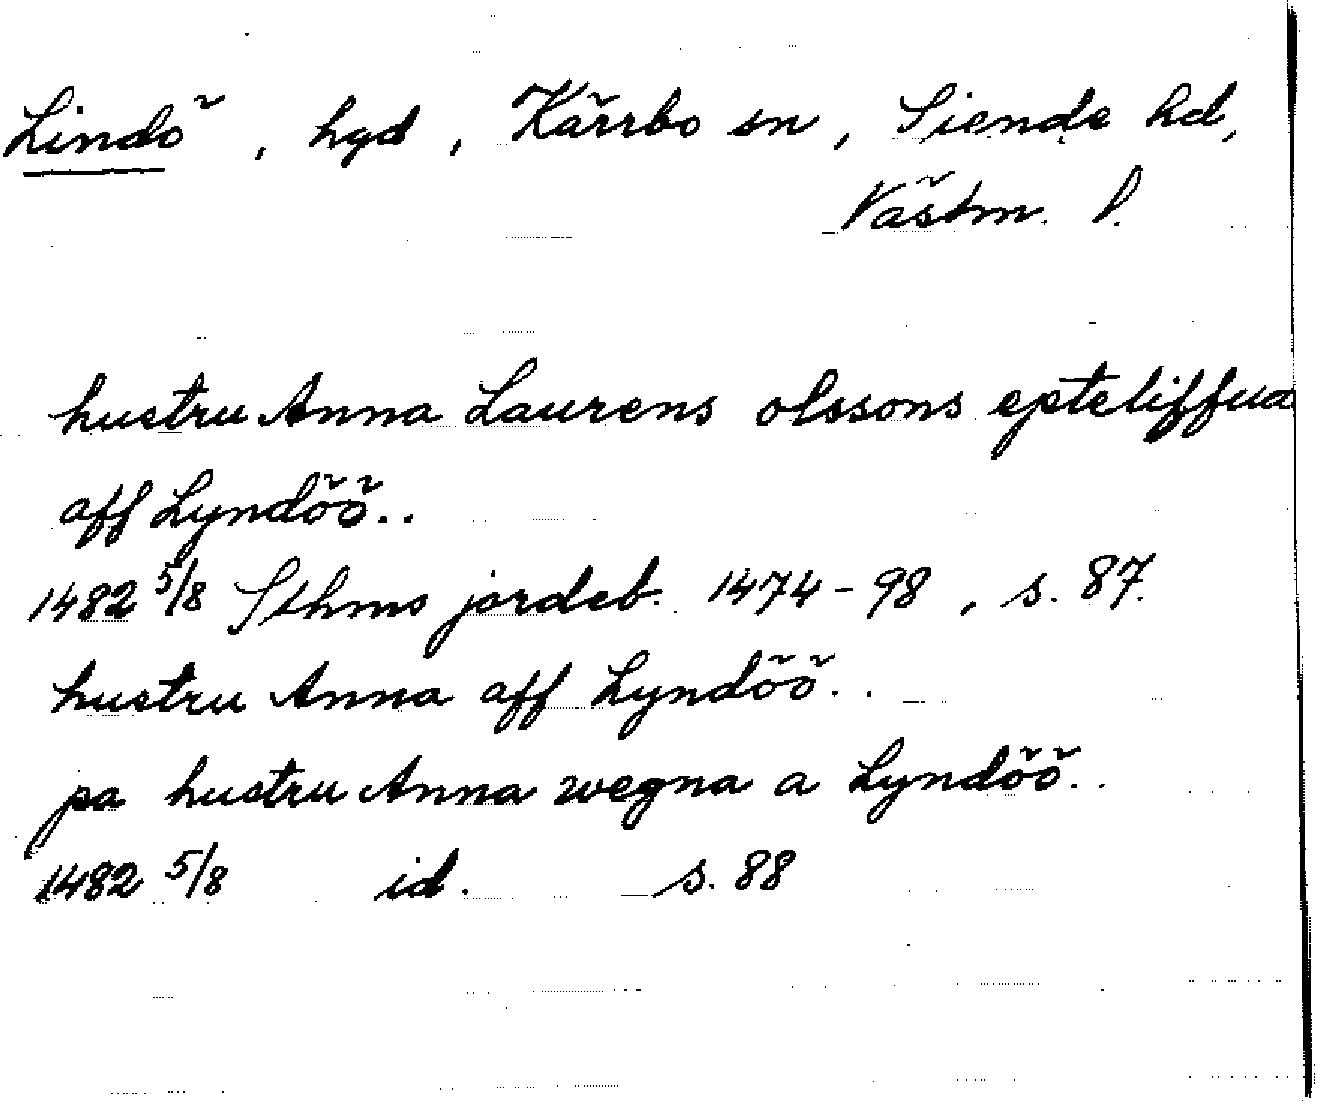 Lindö, hgd, Kärrbo sn, Siende hd,
Västm. l.
hustru Anna Laurens olssons epteliffua
aff Lyndöö..
1482 5/8 Sthms jordeb. 1474-98, s. 87.
hustru Anna aff Lyndöö..
pa hustru Anna wegna a Lyndöö..
1482 5/8 id. s. 88